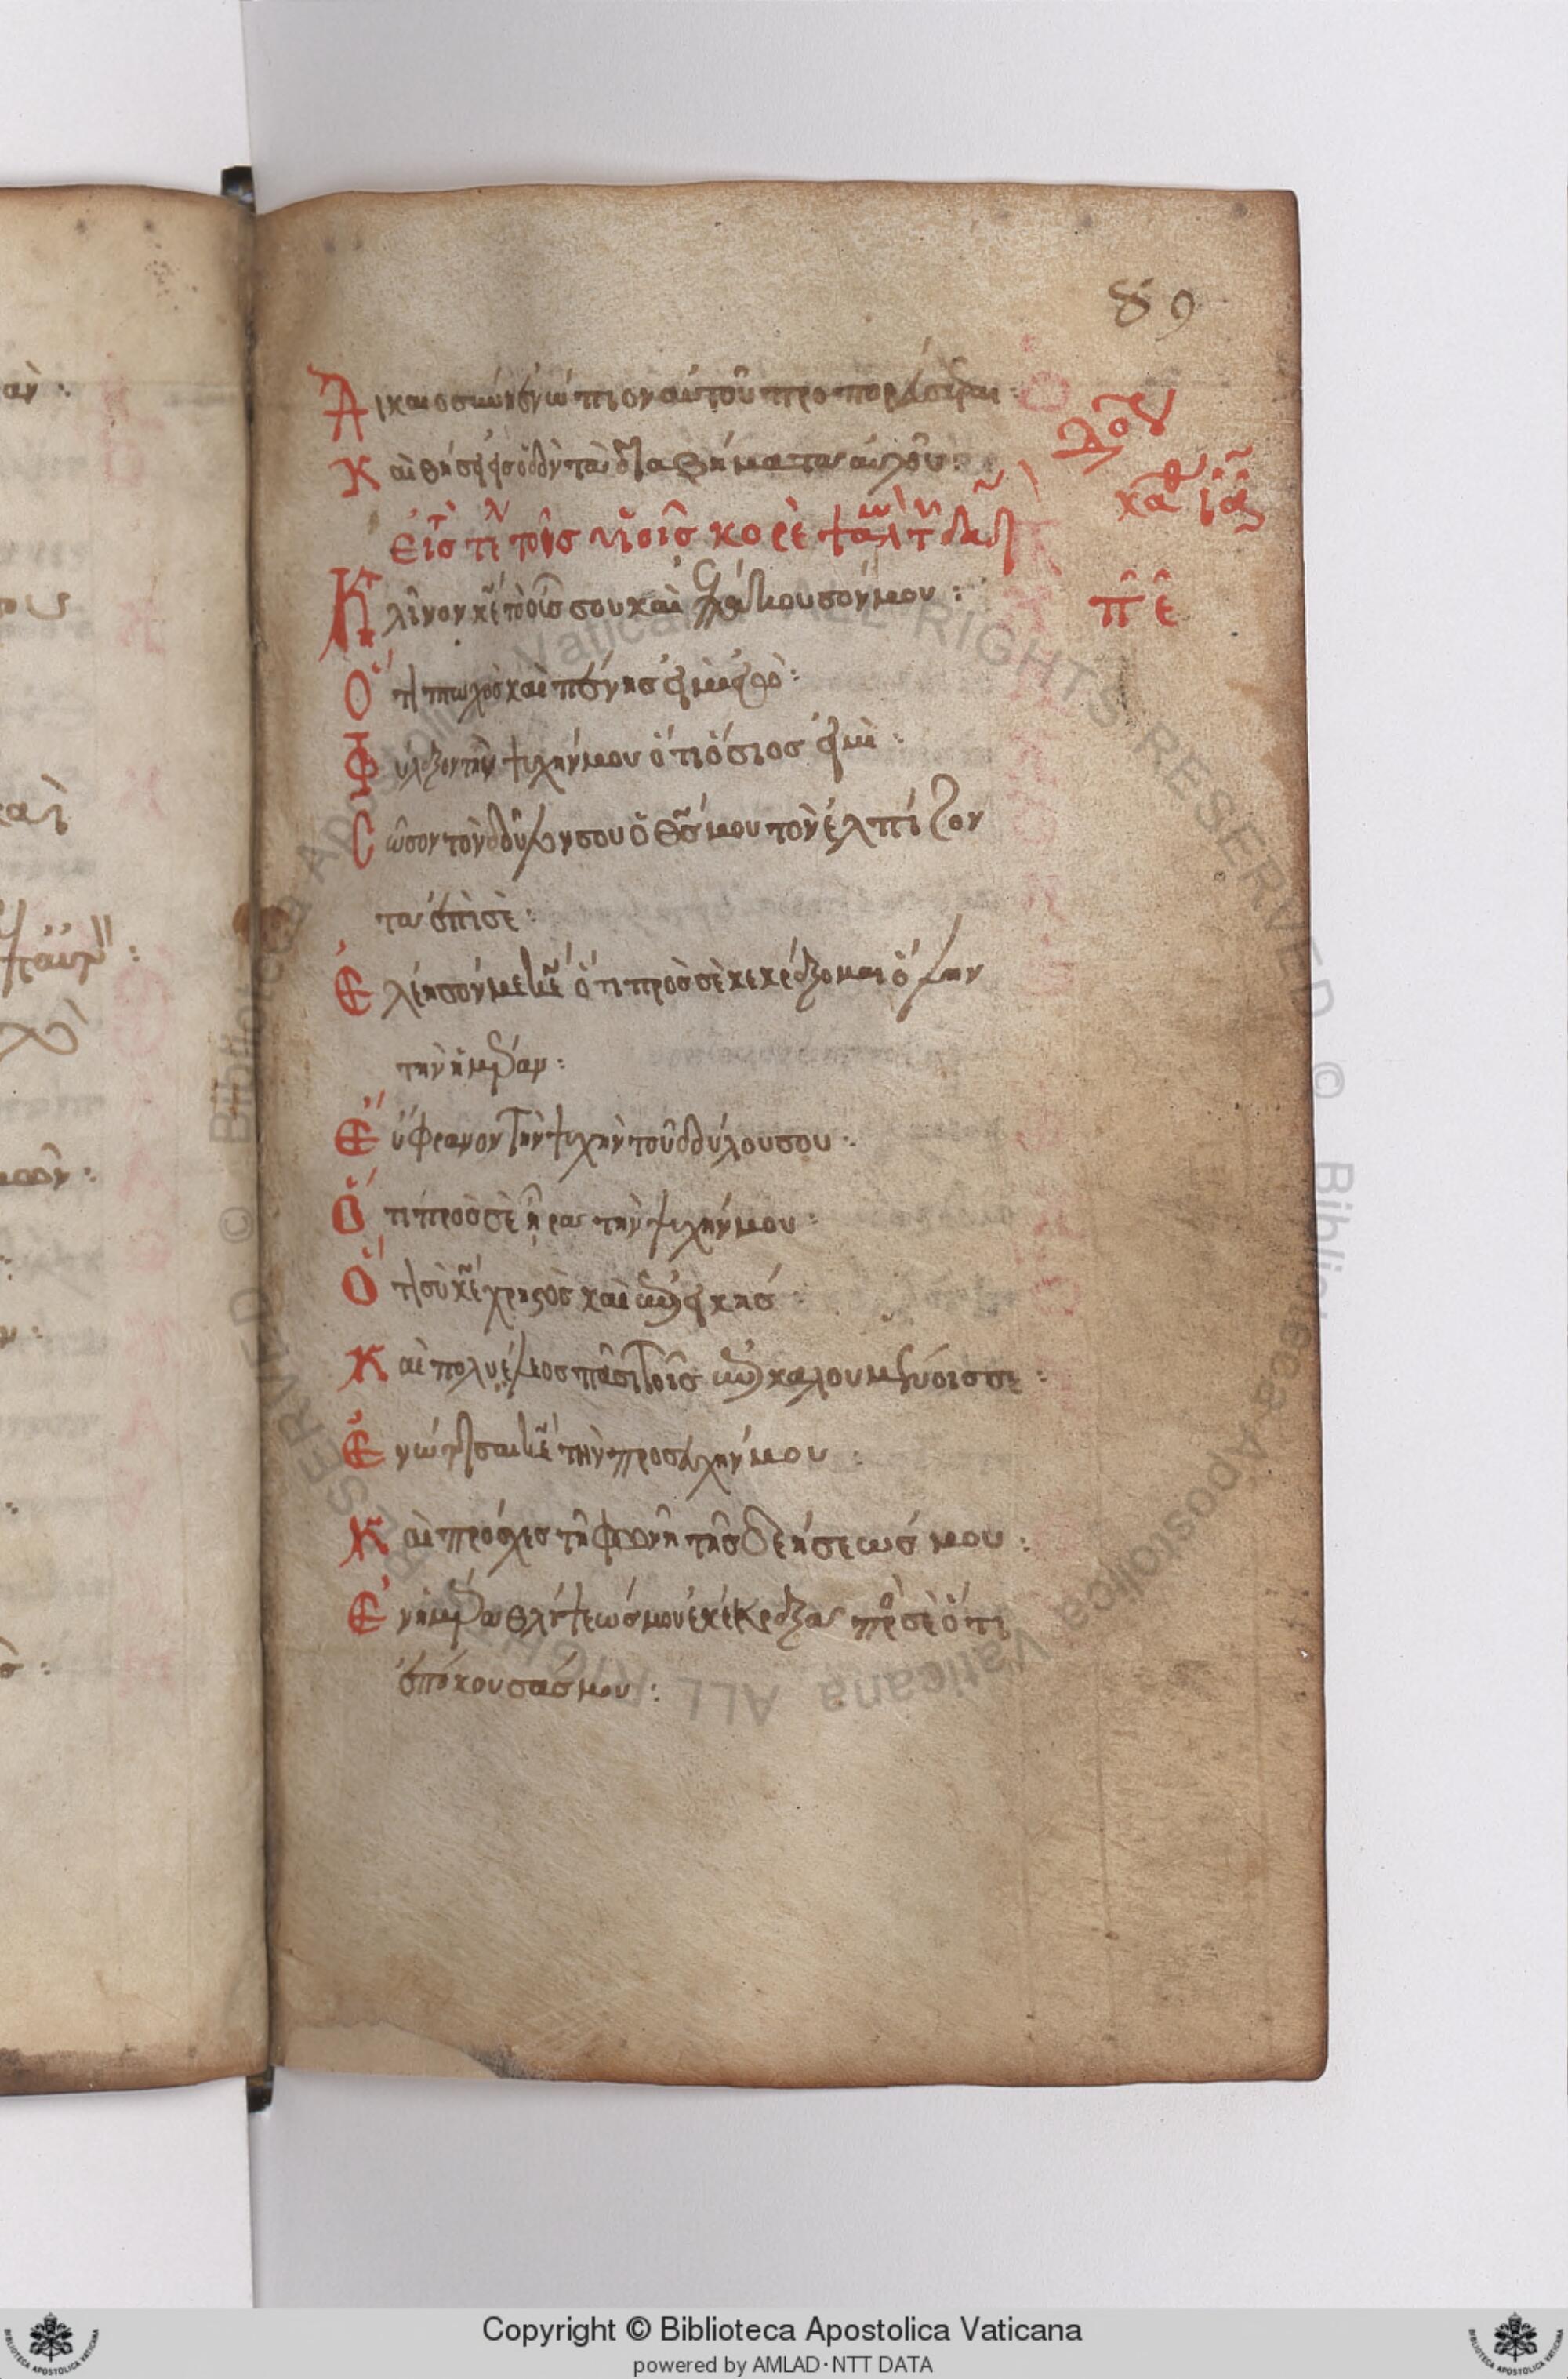 89
Δικαιοσύνη ἐνώπιον αὐτοῦ προπορεύσεται :
Καὶ θήσει εἰς ὁδὸν τὰ διαβήματα αὐτοῦ :
Εἰς τὸ τέλ τοῖς υἱοῖς κορὲ ψαλ τῶ δαδ
πε
Κλῖνον κε τὸ οὖς σου καὶ ἐπάκουσόν μου :
Ὅτι πτωχὸς καὶ πένης εἰμὶ ἐγώ :
Φύλαξον τὴν ψυχήν μου ὅτι ὅσιος εἰμὶ :
Σῶσον τὸν δοῦλον σου ὁ θς μου τὸν ἐλπίζον
τα ἐπὶ σὲ :
Ἐλέησόν με κε ὅτι πρὸς σὲ κεκράξομαι ὅλην
τὴν ἡμέραν :
Εὔφρανον τὴν ψυχὴν τοῦ δούλου σου :
Ὅτι πρὸς σὲ ἦρα τὴν ψυχήν μου :
Ὅτι σὺ κε χρηστὸς καὶ ἐπιεικὴς :
Καὶ πολυέλεος πᾶσι τοῖς ἐπικαλουμένοις σε :
Ἐνώτισαι κε τὴν προσευχήν μου :
Καὶ πρόσχες τῇ φωνῇ τῆς δεήσεως μου :
Ἐν ἡμέρα θλίψεώς μου ἐκέκραξα πρὸς σὲ ὅτι
ἐπήκουσάς μου :
Copyright © Biblioteca Apostolica Vaticana
powered by AMLAD·NTT DATA